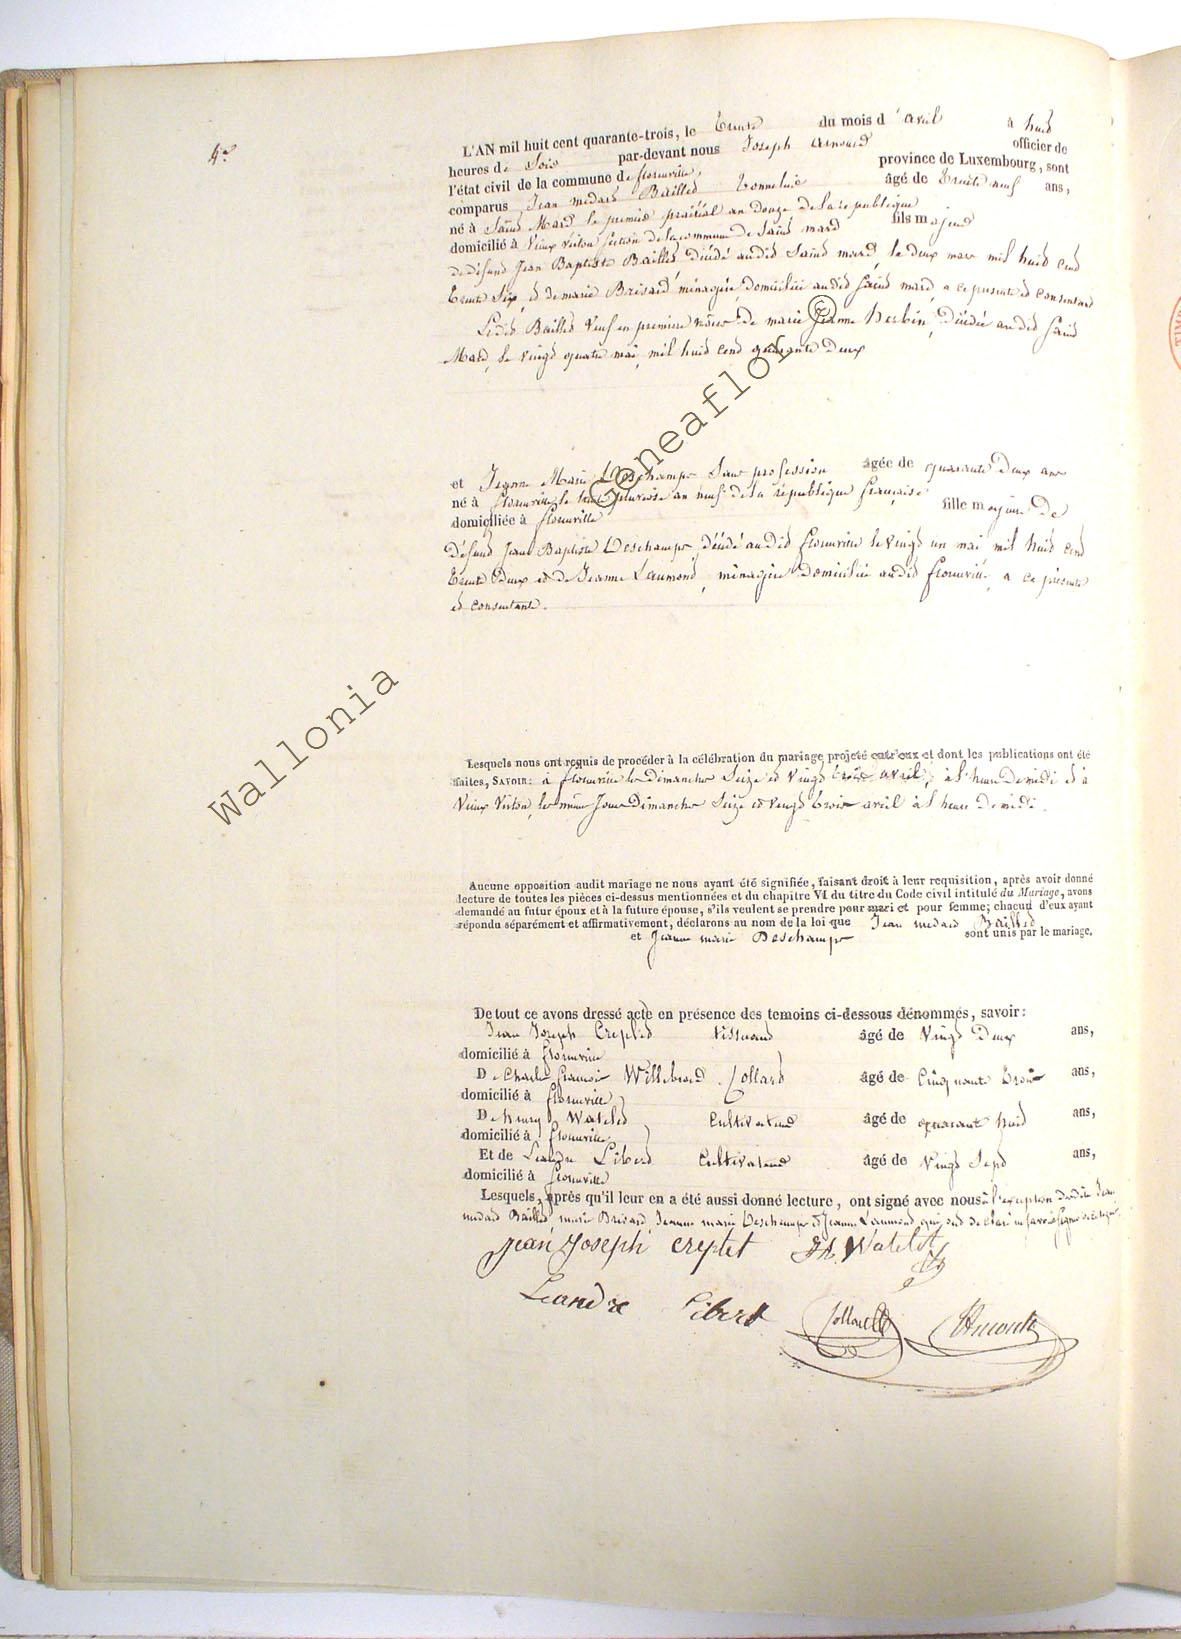 4e
L'AN mil huit cent quarante-trois, le trente du mois d'avril à huit
heures de Soir par-devant nous Joseph Arnould officier de
l'état civil de la commune de florenville, province de Luxembourg, sont
comparus Jean medard Baillet tonnelier âgé de trente neuf ans,
né à Saint Mard le premier prairial an douze de la republique
domicilié à Vieux Virton section de la commune de Saint mard fils majeur
de défunt Jean Baptiste Baillet décédé audit Saint mard, le deux mars mil huit cent
trente six, et de marie Brisard, ménagère, domiciliée audit Saint mard, a ce presente et consentant
Ledit Baillet veuf en premiere nôces de marie Jeanne herbin, décédée audit Saint
Mard, le vingt quatre mai, mil huit cent quarante deux
et Jeanne Marie Deschamps Sans profession âgée de quarante deux ans
né à florenville le pluviose an neuf de la république française
domiciliée à florenville fille majeure de
Défunt Jean Baptiste Deschamps, décédé audit florenville le vingt un mai, mil huit cent
trente deux et de Jeanne Laumond, ménagère domiciliée audit florenville, a ce présente
et consentante.
Lesquels nous ont requis de procéder à la célébration du mariage projeté entr'eux et dont les publications ont été
faites, SAVOIR: à florenville les Dimanches Seize et vingt trois avril, à l'heure de midi et à
Vieux Virton, les même Jours Dimanches Seize et vingt trois avril à l'heure de midi.
Aucune opposition audit mariage ne nous ayant été signifiée, faisant droit à leur requisition, après avoir donné
lecture de toutes les pièces ci-dessus mentionnées et du chapitre VI du titre du Code civil intitulé du Mariage, avons
demandé au futur époux et à la future épouse, s'ils veulent se prendre pour mari et pour femme; chacun d'eux ayant
répondu séparément et affirmativement, déclarons au nom de la loi que Jean medard Baillet
et Jeanne marie Deschamps sont unis par le mariage.
De tout ce avons dressé acte en présence des temoins ci-dessous dénommés, savoir:
Jean Joseph Creplet tisserand âgé de vingt deux ans,
domicilié à florenville
De Charles françois Willebrord Collard âgé de Cinquante trois ans,
domicilié à florenville
De henry Watelet Cultivateur âgé de quarante huit ans,
domicilié à florenville
Et de Leandre Libert Cultivateur âgé de vingt Sept ans,
domicilié à florenville
Lesquels, après qu'il leur en a été aussi donné lecture, ont signé avec nous à l'exception desdits Jean
medard Baillet, marie Brisard, Jeanne marie Deschamps et Jeanne Laumond qui ont declaré ne savoir signer
jean joseph creplet Wateletz
Leandre Libert Collard Arnould
Wallonia
©Geneaflor